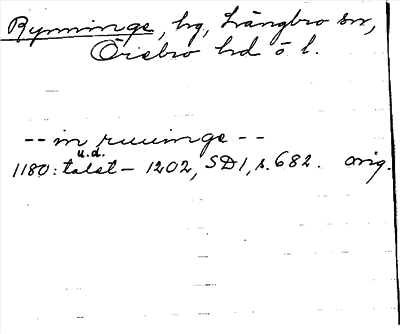 Rynninge, hg, Längbro sn,
Örebro hd ö l.
-- in ruuinge --
u.d.
1180: talet – 1202, SD1, s. 682. orig.